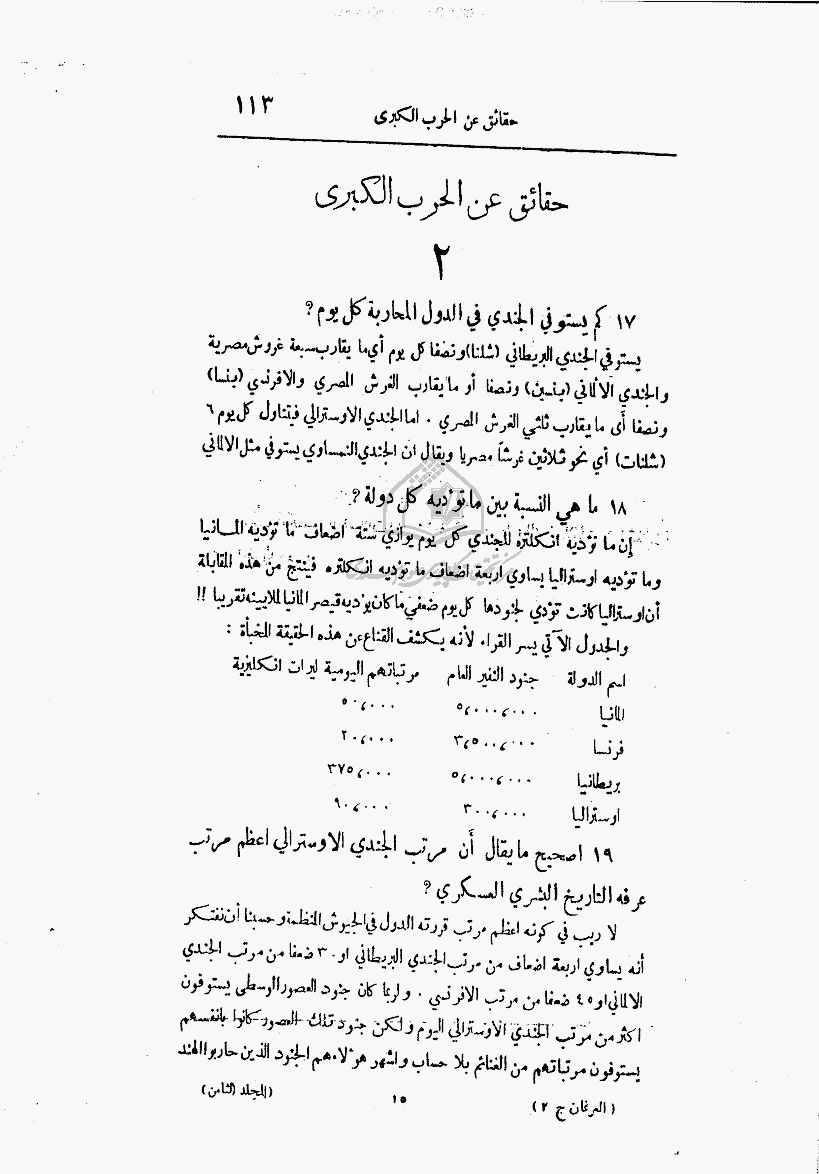 حقائق عن الحرب الكبرى ١١٣
حقائق عن الحرب الكبرى
٢
١٧ كم يستوفي الجندي في الدول المحاربة كل يوم ؟
يستوفي الجندي البريطاني (شلنا) ونصفا كل يوم أي ما يقارب سبعة غروش مصرية
والجندي الالماني (بنسين) ونصفا أو ما يقارب الغرش المصري والافرنسي (بنسا)
ونصفا أى ما يقارب ثلثي الغرش المصري . اما الجندي الاوسترالي فيتناول كل يوم ٦
(شلنات) أي نحو ثلاثين غرشاً مصريا ويقال ان الجندي النمساوي يستوفي مثل الالماني
١٨ ما هي النسبة بين ما تؤديه كل دولة ؟
إن ما تؤديه انكلتره للجندي كل يوم يوازي ستة اضعاف ما تؤديه المانيا
وما تؤديه اوستراليا يساوي اربعة اضعاف ما تؤديه انكلتره فينتج من هذه المقابلة
أن اوستراليا كانت تؤدي لجنودها كل يوم ضعفي ما كان يؤديه قيصر المانيا لملايينه تقريبا !!
والجدول الآتي يسر القراء لأنه يكشف القناع عن هذه الحقيقة المخبأة :
اسم الدولة جنود النفير العام مرتباتهم اليومية ليرات انكليزية
المانيا ٥٬٠٠٠٬٠٠٠ ٥٠٬٠٠٠
فرنسا ٣٬٥٠٠٬٠٠٠ ٢٠٬٠٠٠
بريطانيا ٥٬٠٠٠٬٠٠٠ ٣٧٥٬٠٠٠
اوستراليا ٣٠٠٬٠٠٠ ٩٠٬٠٠٠
١٩ اصحيح ما يقال أن مرتب الجندي الاوسترالي اعظم مرتب
عرفه التاريخ البشري العسكري ؟
لا ريب في كونه اعظم مرتب قررته الدول في الجيوش المنظمة وحسبنا أن نفتكر
أنه يساوي اربعة اضعاف من مرتب الجندي البريطاني او ٣٠ ضعفا من مرتب الجندي
الالماني او ٤٥ ضعفا من مرتب الافرنسي . ولربما كان جنود العصور الوسطى يستوفون
اكثر من مرتب الجندي الاوسترالي اليوم ولكن جنود تلك العصور كانوا بانفسهم
يستوفون مرتباتهم من الغنائم بلا حساب واشهر هؤلاء هم الجنود الذين حاربوا الهند
(العرفان ج ٢) ١٥ (المجلد الثامن)